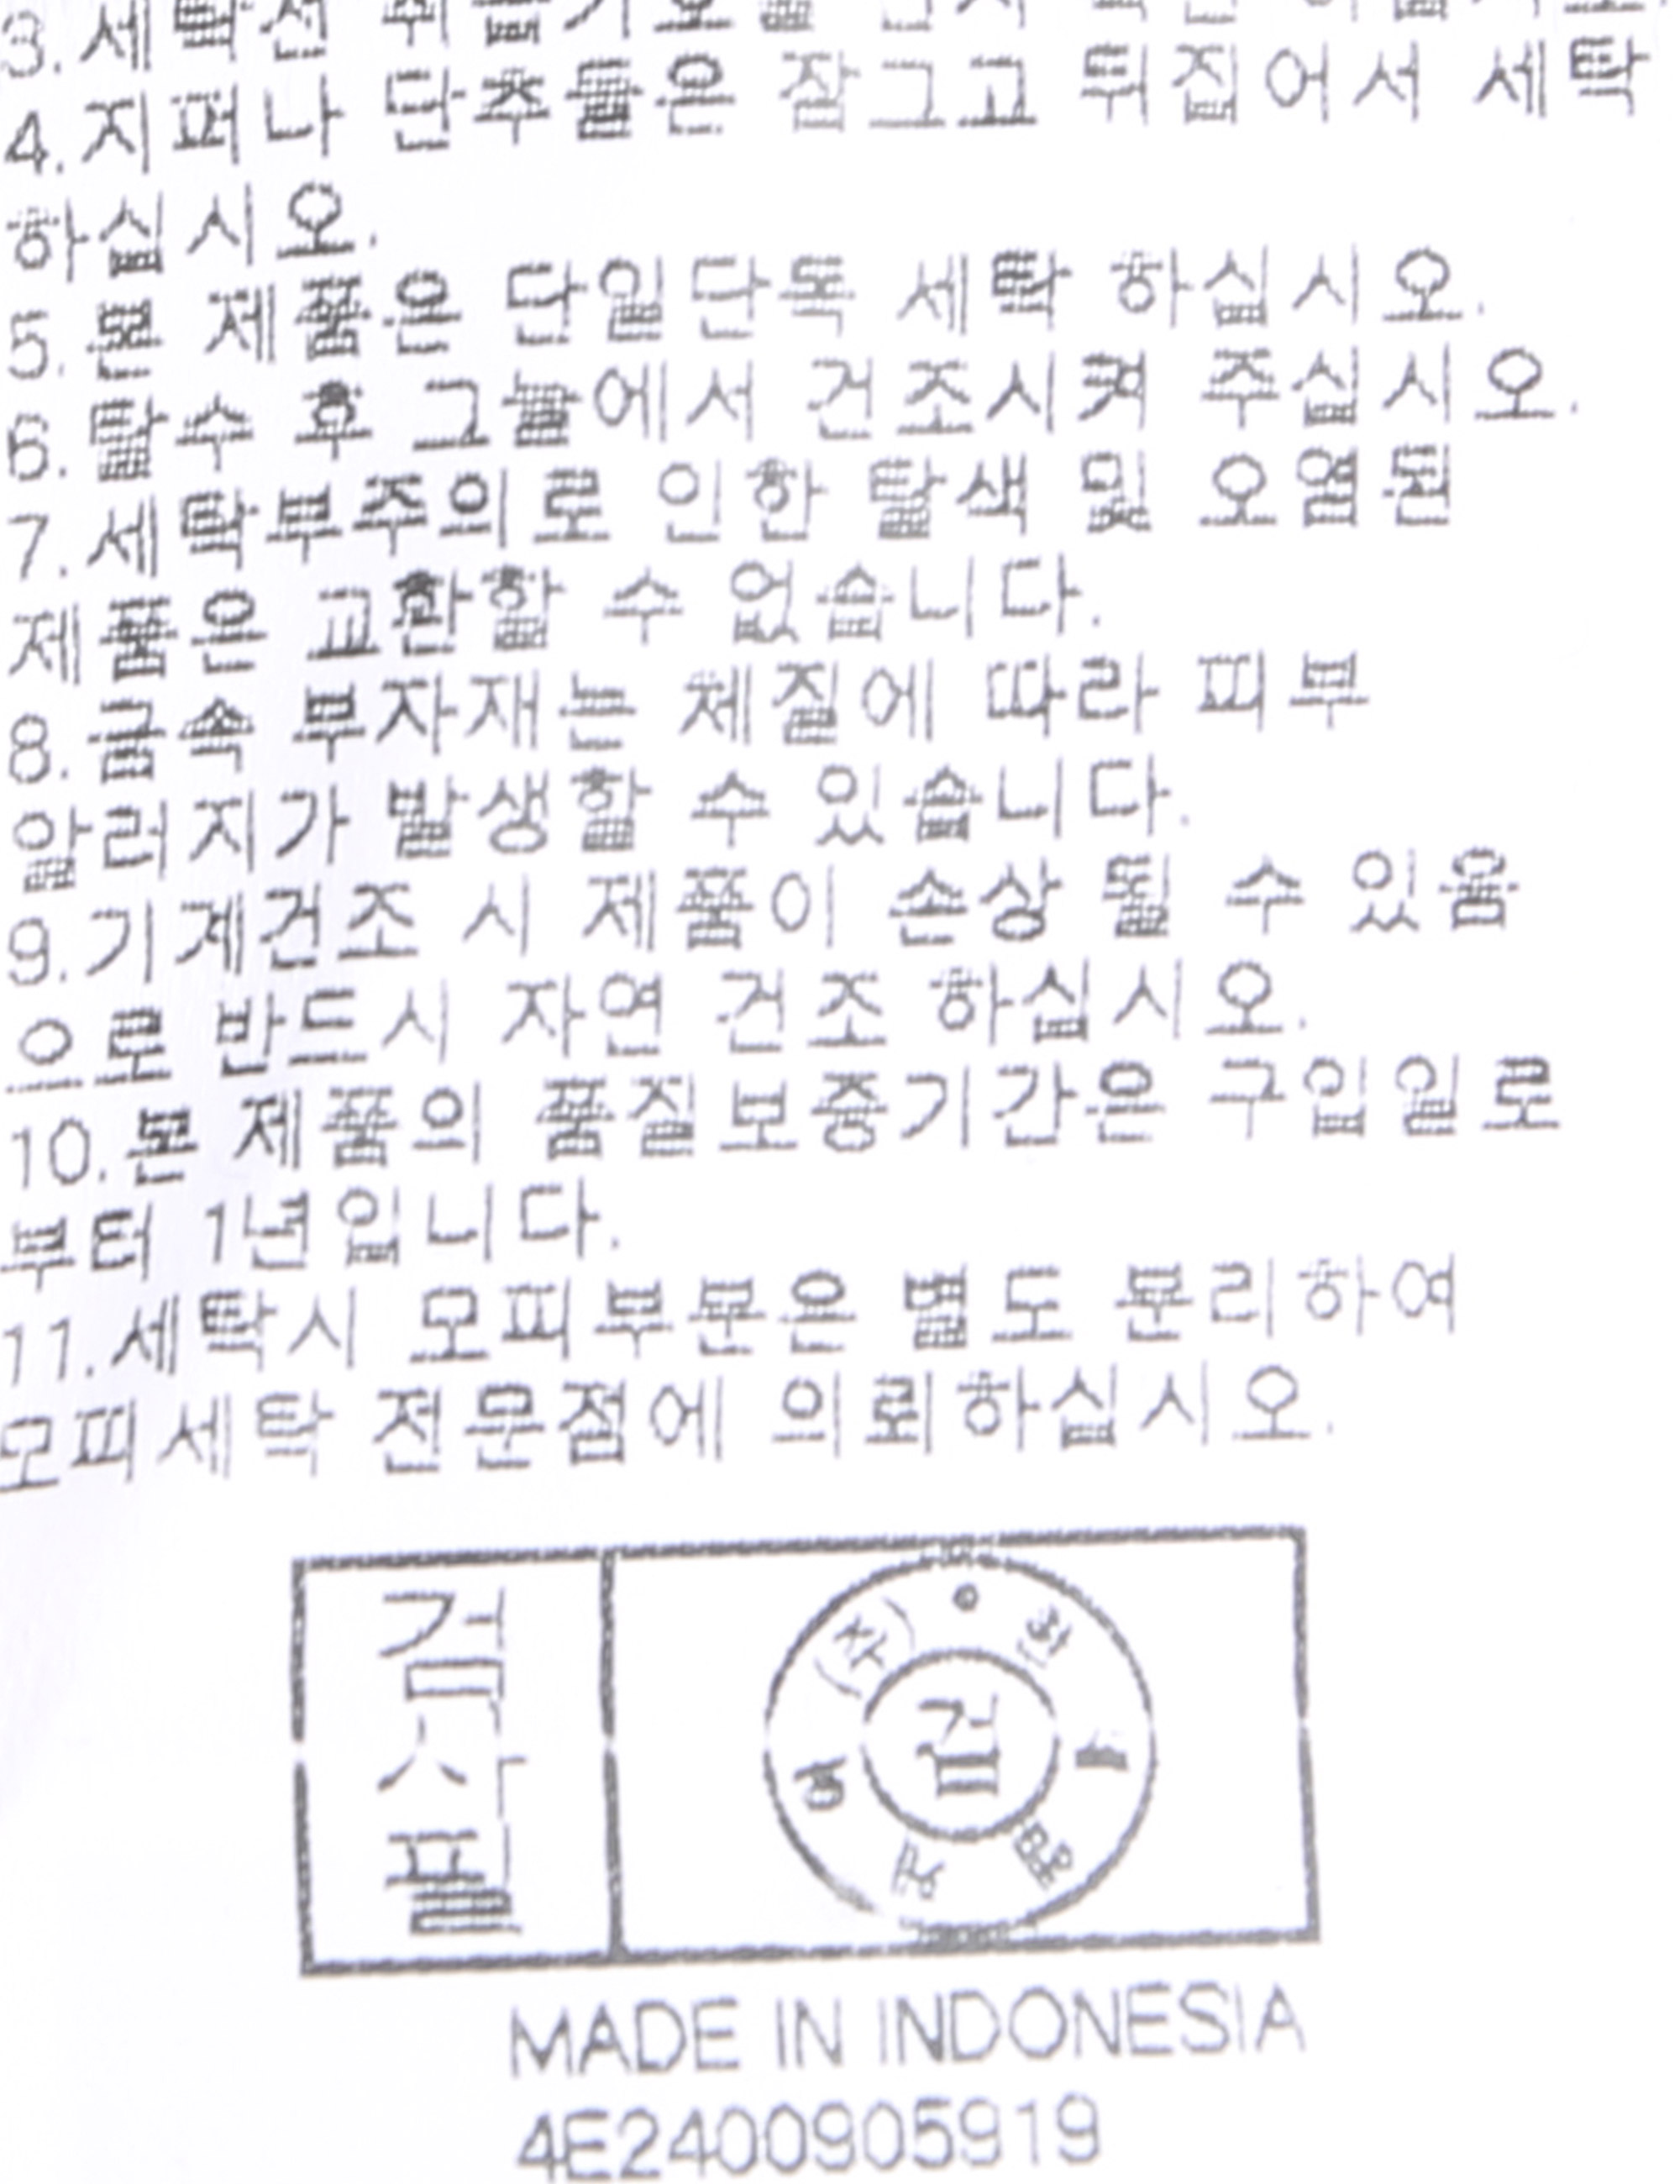 3.세탁전 취급기호를 반드시 확인 하십시오.
4.지퍼나 단추들은 잠그고 뒤집어서 세탁
하십시오.
5.본 제품은 단일단독 세탁 하십시오.
6.탈수 후 그늘에서 건조시켜 주십시오.
7.세탁부주의로 인한 탈색 및 오염된
제품은 교환할 수 없습니다.
8.금속 부자재는 체질에 따라 피부
알러지가 발생할 수 있습니다.
9.기계건조 시 제품이 손상 될 수 있음
으로 반드시 자연 건조 하십시오.
10.본 제품의 품질보증기간은 구입일로
부터 1년입니다.
11.세탁시 모피부분은 별도 분리하여
모피세탁 전문점에 의뢰하십시오.
검사필
(주)
검
MADE IN INDONESIA
4E2400905919